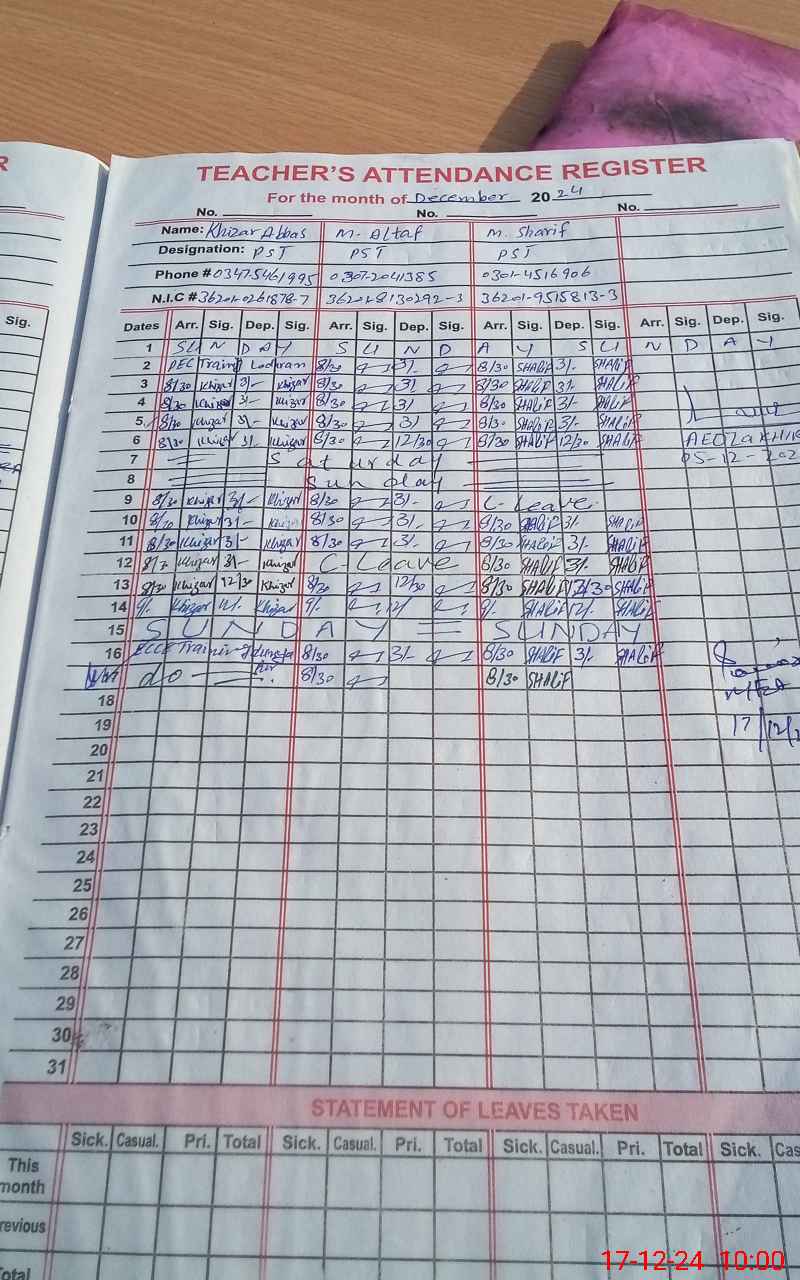 R
TEACHER'S ATTENDANCE REGISTER
For the month of December 2024
No. No. No.
Name: Khizar Abbas M. Altaf M. Sharif
Designation: PST PST PST
Phone # 03475461995 0307-2041385 0301-4516906
N.I.C # 36201-0261878-7 36201-8130292-3 36201-9515813-3
Sig.
Dates Arr. Sig. Dep. Sig. Arr. Sig. Dep. Sig. Arr. Sig. Dep. Sig. Arr. Sig. Dep. Sig.
1 SUNDAY S U N D A Y S U N D A Y
2 PEC Training Lodhran 8/30 3/- 8/30 SHARiF 3/- SHARiF
3 8/30 Khizar 3/- Khizar 8/30 3/ 8/30 SHARiF 3/- SHARiF
4 8/30 Khizar 3/- Khizar 8/30 3/ 8/30 SHARiF 3/- SHARiF
5 8/30 Khizar 3/- Khizar 8/30 3/ 8/30 SHARiF 3/- SHARiF
6 8/30 Khizar 3/- Khizar 8/30 12/30 8/30 SHARiF 12/30 SHARiF AEO
7 Saturday 05-12-202
8 Sunday
9 8/30 Khizar 3/- Khizar 8/30 3/- C-Leave
10 8/30 Khizar 3/- Khizar 8/30 3/- 8/30 SHARiF 3/- SHARiF
11 8/30 Khizar 3/- Khizar 8/30 3/- 8/30 SHARiF 3/- SHARiF
12 8/30 Khizar 3/- Khizar C-Leave 8/30 SHARiF 3/- SHARiF
13 8/30 Khizar 12/30 Khizar 8/30 12/30 8/30 SHARiF 12/30 SHARiF
14 9/- Khizar 12/- Khizar 9/- 12/ 9/- SHARiF 12/- SHARiF
15 SUNDAY SUNDAY
16 ECCE Training 8/30 3/- 8/30 SHARiF 3/- SHARiF
do 8/30 8/30 SHARiF
18
19 17/12/2
20
21
22
23
24
25
26
27
28
29
30
31
STATEMENT OF LEAVES TAKEN
Sick. Casual. Pri. Total Sick. Casual. Pri. Total Sick. Casual. Pri. Total Sick. Cas
This
month
revious
otal
17-12-24 10:00